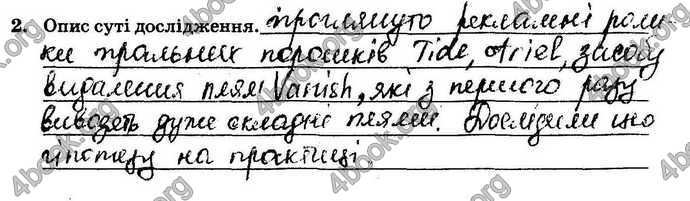 2. Опис суті дослідження. проглянуто рекламні роли-
ки пральних порошків Tide, Ariel, засобу
видалення плям Vanish, які з першого разу
виводять дуже складні плями. Дослідили цю
гіпотезу на практиці.
4book.org